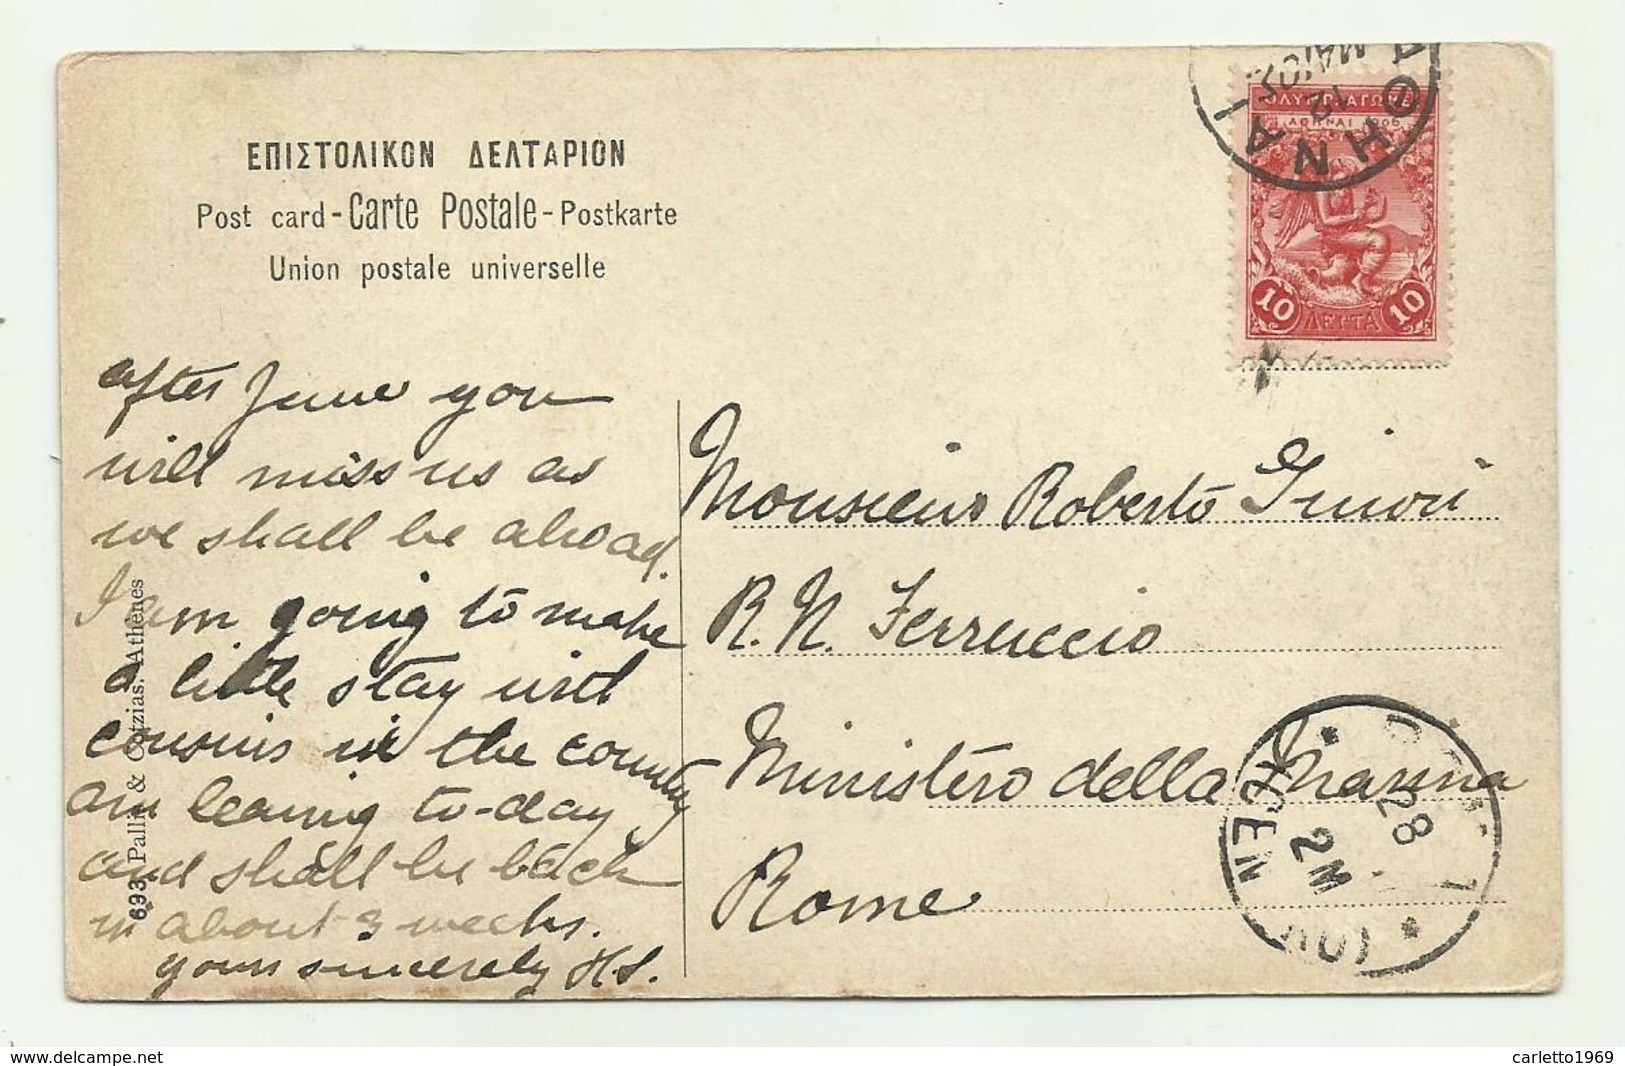 ΕΠΙΣΤΟΛΙΚΟΝ ΔΕΛΤΑΡΙΟΝ
Post card - Carte Postale - Postkarte
Union postale universelle
ΑΘΗΝΑΙ
12
ΜΑΙΟΣ
ΟΛΥΜΠ ΑΓΩΝΕΣ
ΑΘΗΝΑΙ 1906
10 ΛΕΠΤΑ 10
after June you
will miss us as
we shall be abroad.
I am going to make
a little stay with
cousins in the country
am leaving to-day
and shall be back
in about 3 weeks.
yours sincerely HS.
693 Pallis & Cotzias. Athènes
Monsieur Roberto
R. N. Ferruccio
Ministero della Marina
Rome
28
2M
delcampe.net
carletto1969